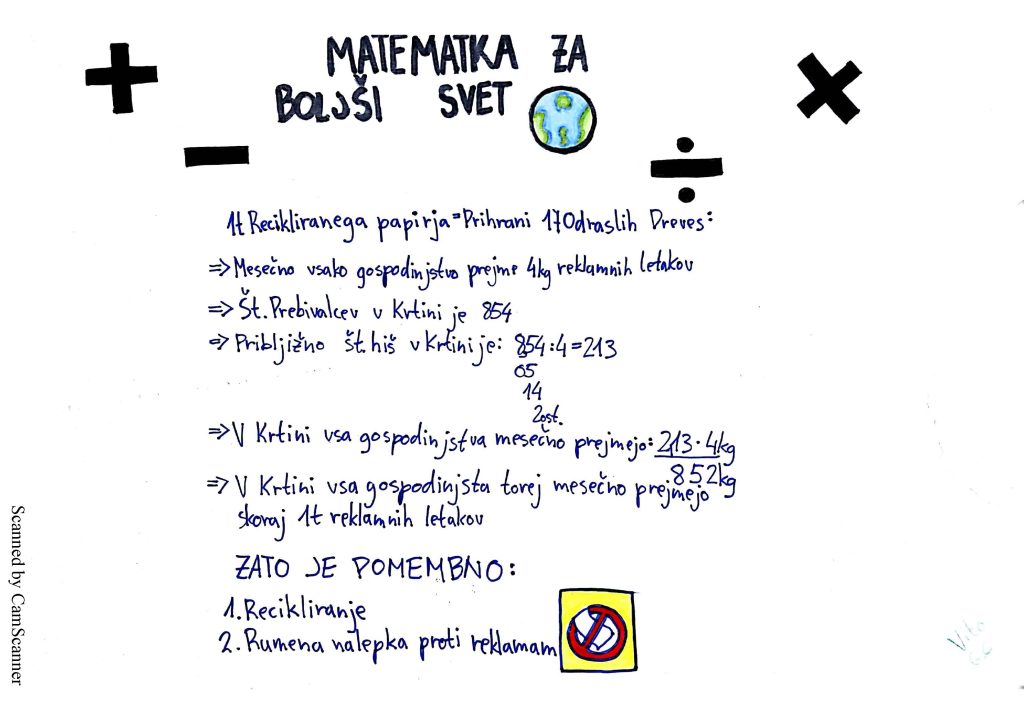 MATEMATKA ZA
BOLJŠI SVET
1t Recikliranega papirja = Prihrani 17 Odraslih Dreves:
=> Mesečno vsako gospodinjstvo prejme 4kg reklamnih letakov
=> Št. Prebivalcev v Krtini je 854
=> Pribljižno št. hiš v Krtini je: 854:4=213
05
14
2ost.
=> V Krtini vsa gospodinjstva mesečno prejmejo: 213·4kg
852kg
=> V Krtini vsa gospodinjsta torej mesečno prejmejo
skoraj 1t reklamnih letakov
ZATO JE POMEMBNO:
1. Recikliranje
2. Rumena nalepka proti reklamam
Scanned by CamScanner